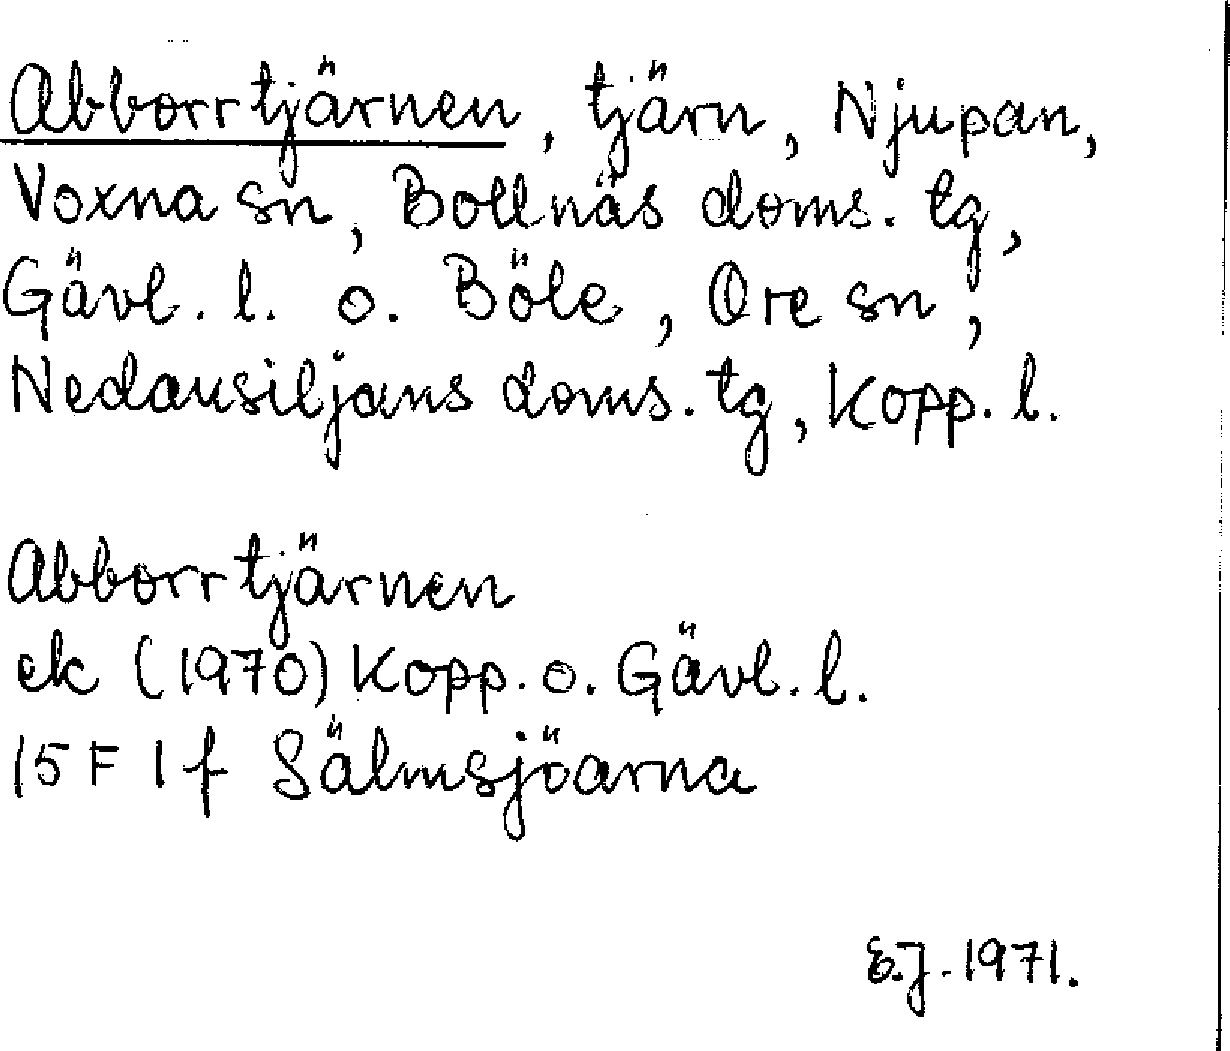 Abborrtjärnen, tjärn, Njupan,
Voxna sn, Bollnäs doms. tg,
Gävl. l. o. Böle, Ore sn,
Nedansiljans doms. tg, Kopp. l.
Abborrtjärnen
ek (1970) Kopp. o. Gävl. l.
15 F 1 f Sälmsjöarna
E.J. 1971.